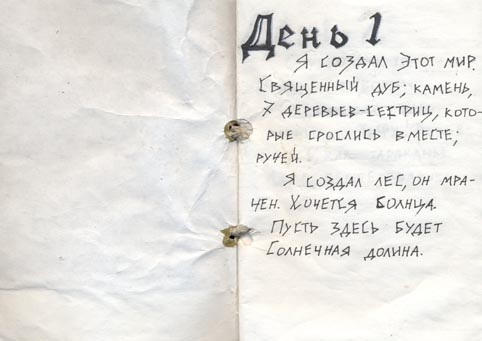 День 1
Я создал этот мир.
Священный дуб; камень,
7 деревьев-сестриц, кото-
рые срослись вместе;
ручей.
Я создал лес, он мра-
чен. Хочется солнца.
Пусть здесь будет
Солнечная долина.